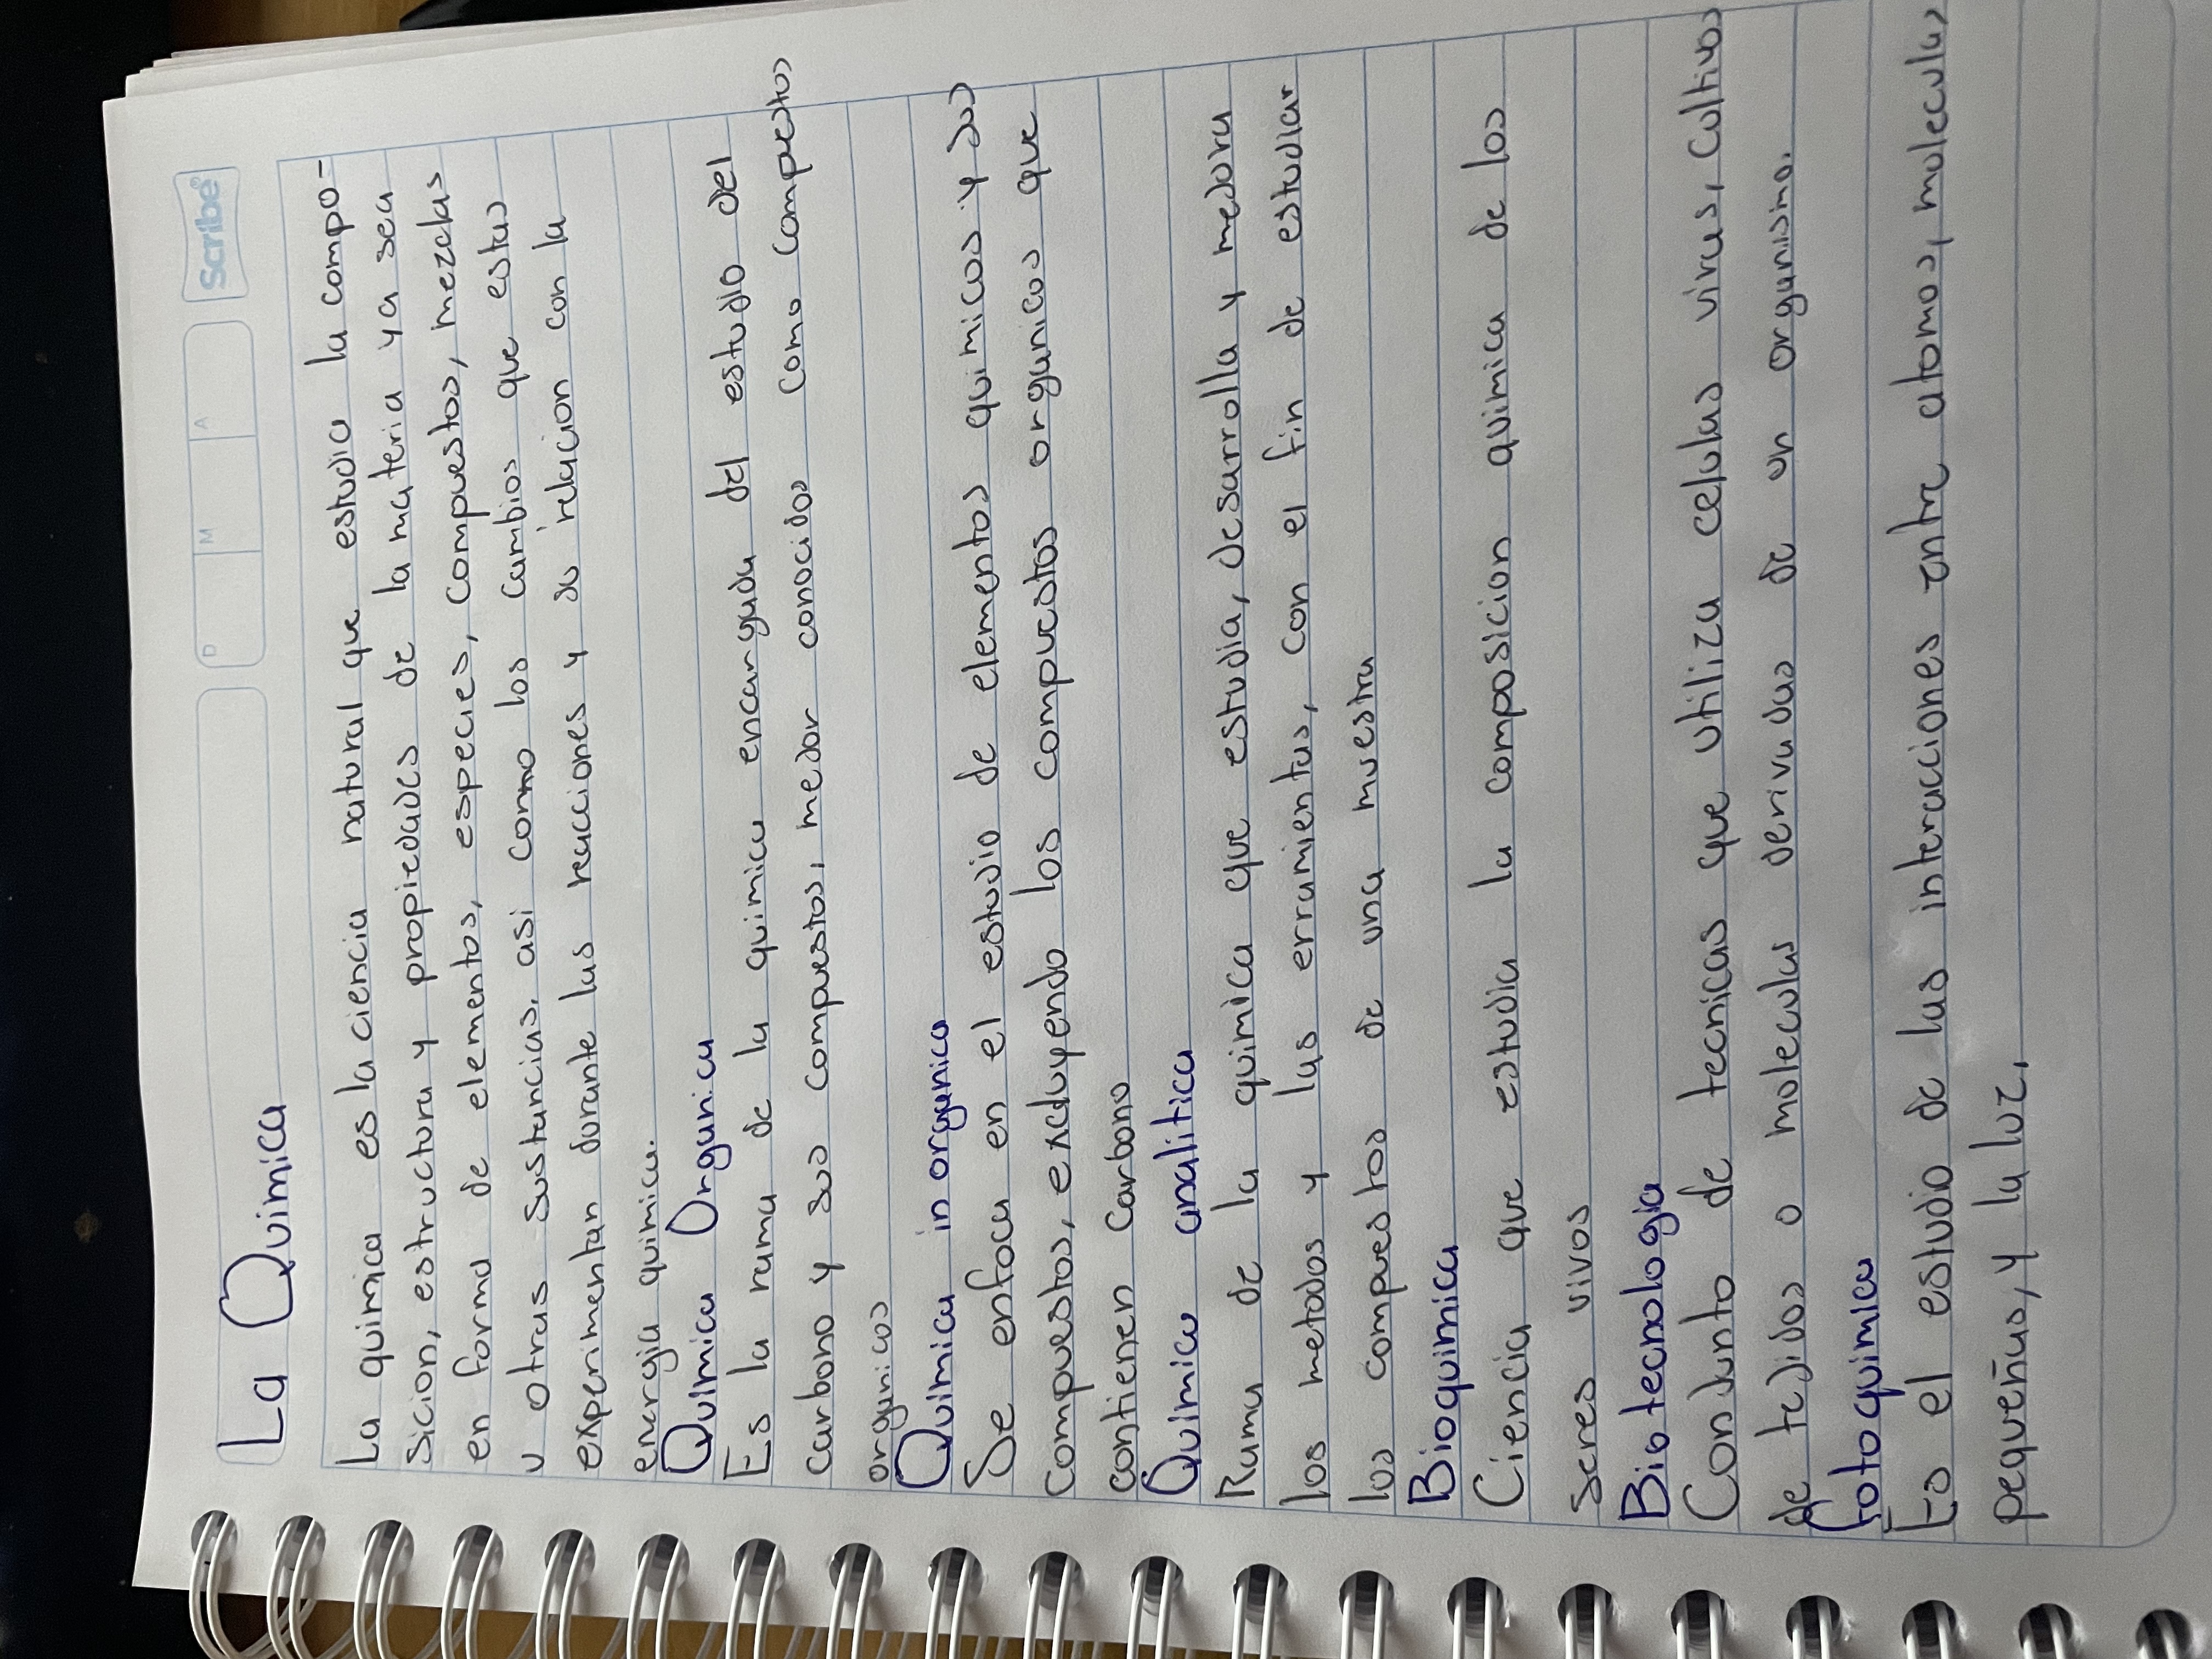 Scribe
D M A
La Quimica
La quimica es la ciencia natural que estudia la compo-
sicion, estructura y propiedades de la materia ya sea
en forma de elementos, especies, compuestos, mezclas
u otras sustancias, asi como los cambios que estas
experimentan durante las reacciones y su relacion con la
energia quimica.
Quimica Organica
Es la rama de la quimica encargada del estudio del
carbono y sus compuestos, mejor conocidos como compestos
organicos
Quimica in organica
Se enfoca en el estudio de elementos quimicos y sus
compuestos, excluyendo los compuestos organicos que
contienen Carbono
Quimica analitica
Rama de la quimica que estudia, desarrolla y mejora
los metodos y las erramientas, con el fin de estudiar
los compuestos de una muestra
Bioquimica
Ciencia que estudia la composicion quimica de los
seres vivos
Biotecnologia
Conjunto de tecnicas que utiliza celulas virus, Cultivos
de tejidos o moleculas derivadas de un organismo.
fotoquimica
Es el estudio de las interacciones entre atomos, moleculas
pequeñas, y la luz.